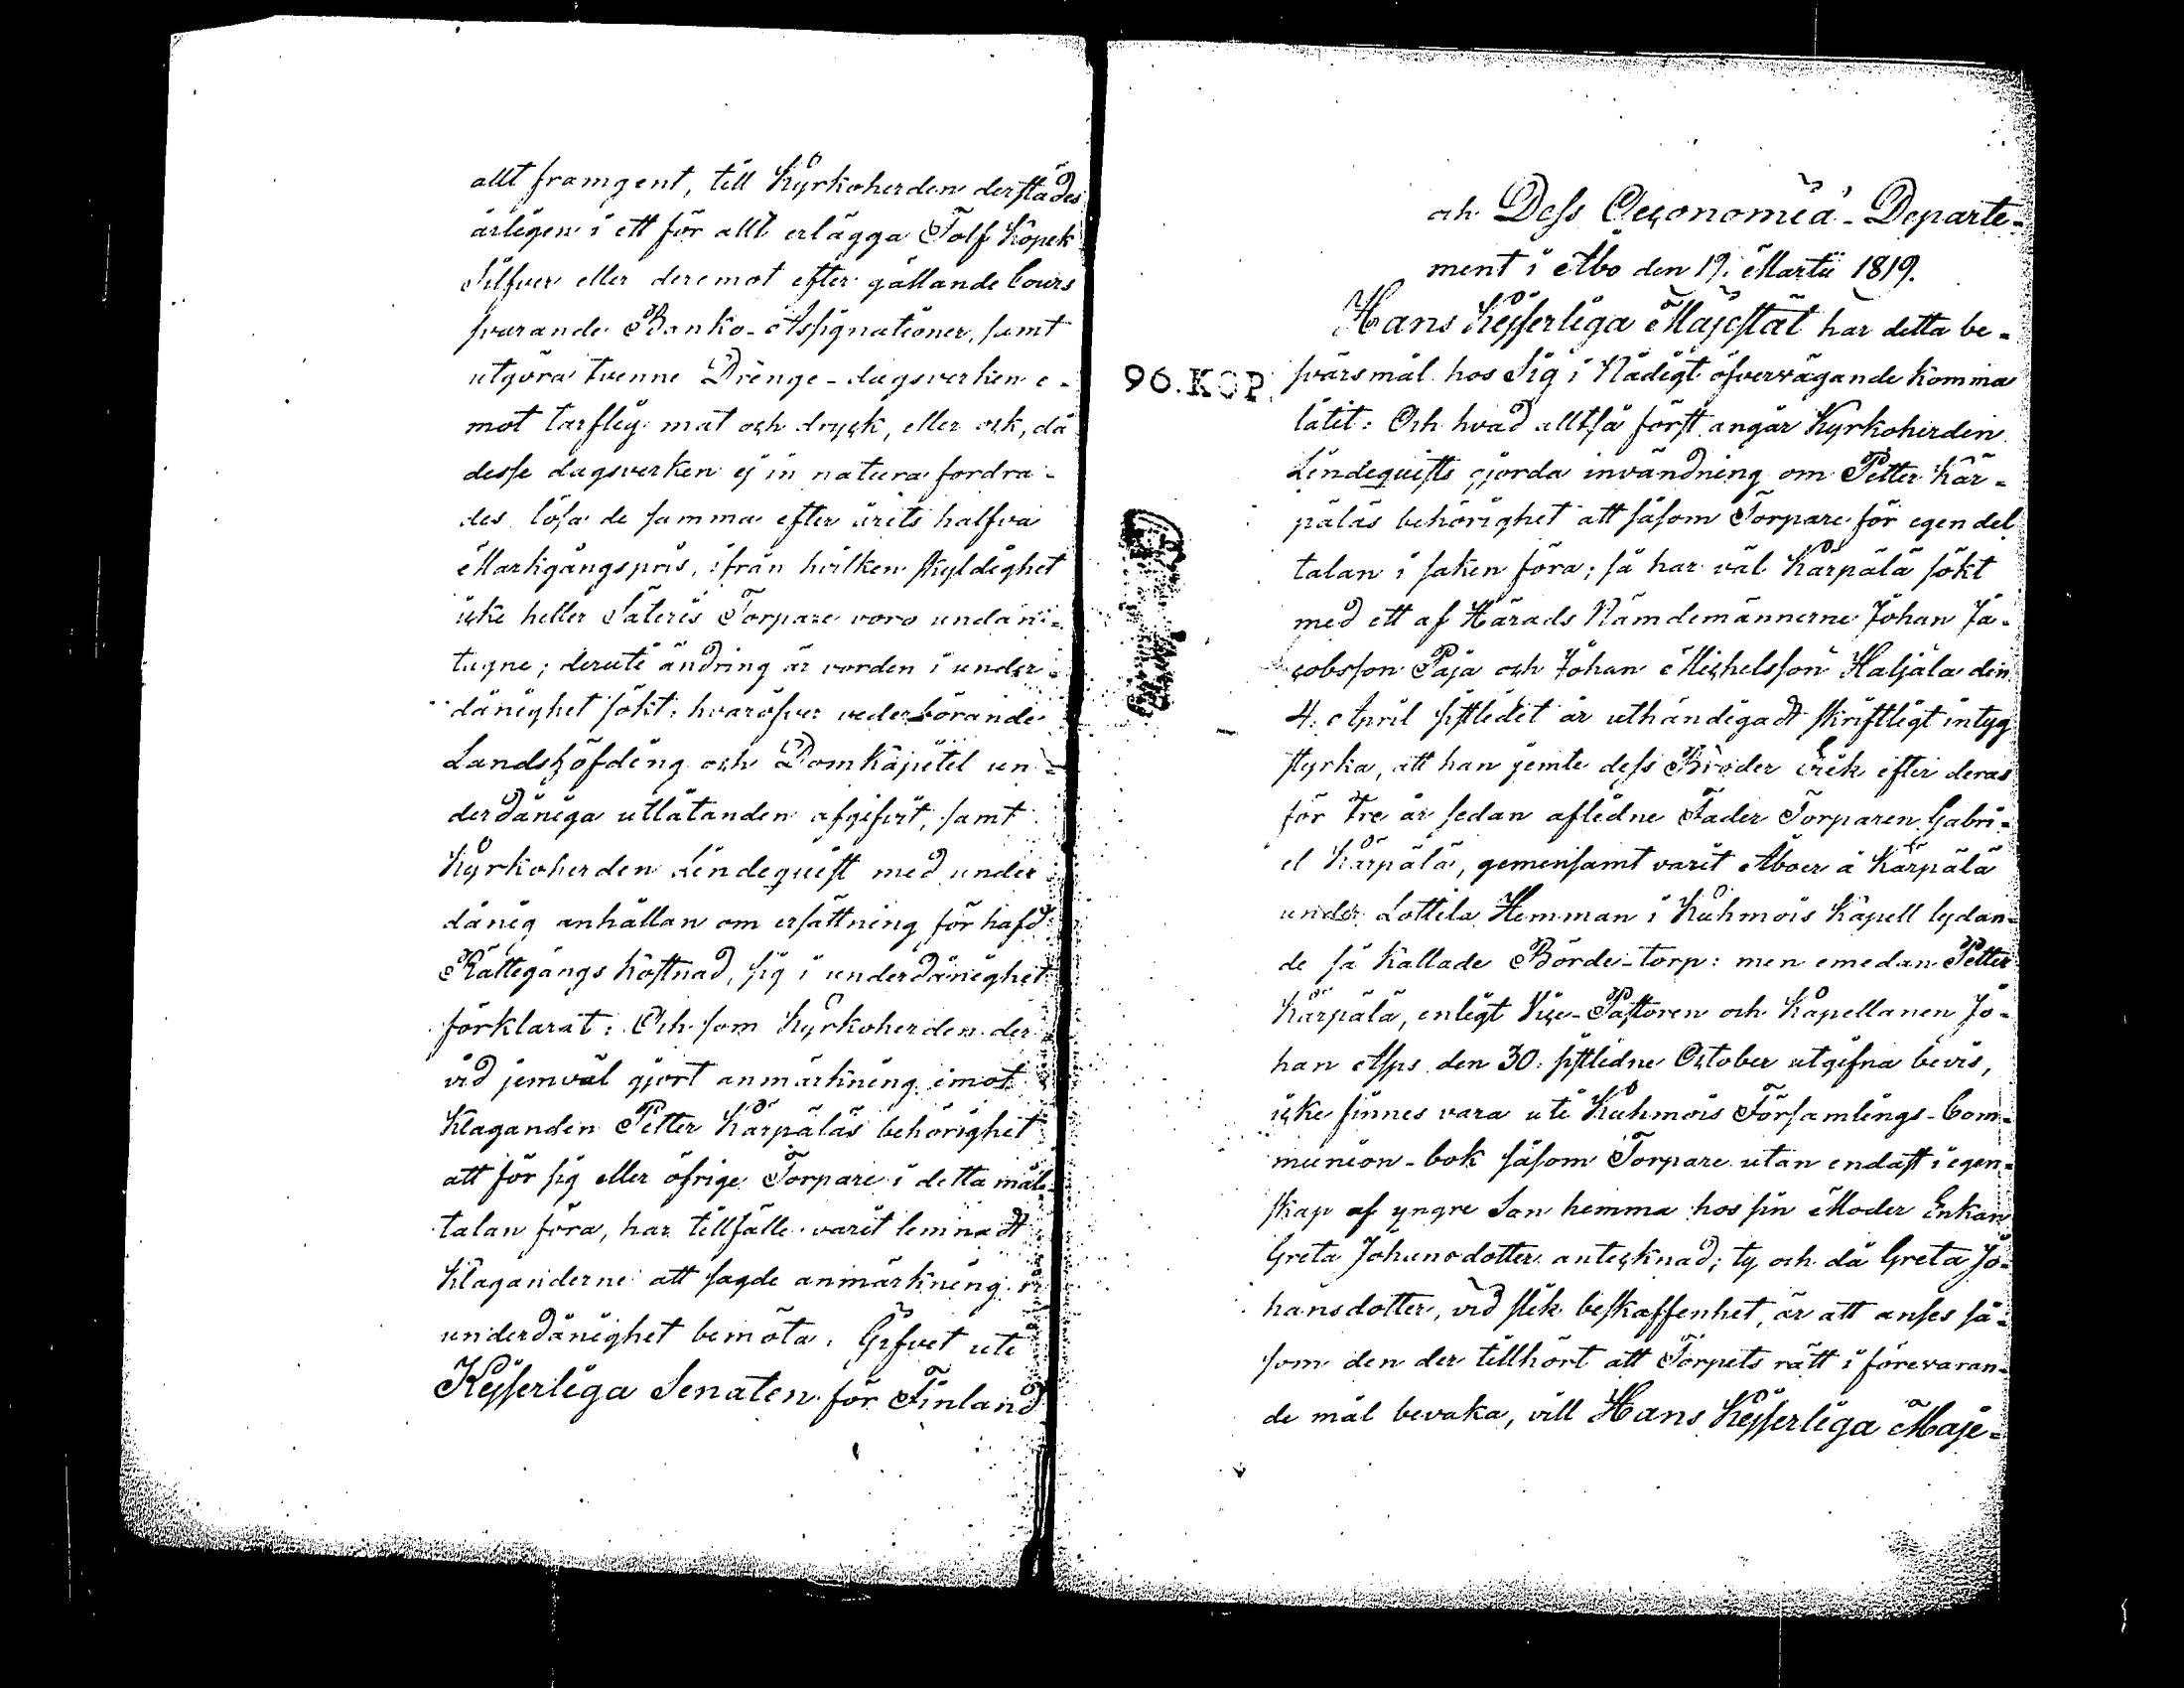 allt framgent, till Kyrkoherden derstädes
årligen i ett för allt erlägga Tolf Kopek
Silfver eller deremot efter gällande Cours
svarande Banko-Assignationer, samt
utgöra tvenne Drenge-dagsverken e-
mot tarflig mat och dryck, eller ock, då
desse dagsverken ej in natura fordra-
des lösa de samma efter årets halfva
Markgångspris, ifrån hvilken skyldighet
icke heller Säteris Torpare voro undan-
tagne; deruti ändring är vorden i under-
dånighet sökt; hvaröfver vederbörande
Landshöfding och Domkapitel un-
derdåniga utlåtanden afgifvit, samt
Kyrkoherden Lindequist med under
dånig anhållan om ersättning för hafd
Rättegångs kostnad, sig i underdånighet
förklarat: Och som Kyrkoherden der
vid jemväl gjort anmärkning emot
Klaganden Petter Kärpäläs behörighet
att för sig eller öfrige Torpare i detta mål
talan föra, har tillfälle varit lemnadt
Klaganderne att sagde anmärkning i
underdånighet bemöta. Gifvet uti
Kejserliga Senaten för Finland
och Dess Oeconomiæ-Departe-
ment i Åbo den 19. Martii 1819.
Hans Kejserliga Majestät har detta be-
96.KOP.
svärsmål hos Sig i Nådigt öfvervägande komma
låtit: Och hvad alltså först angår Kyrkoherden
Lindequists gjorda invändning om Petter Kär-
päläs behörighet att såsom Torpare för egen del
talan i saken föra; så har väl Kärpälä sökt
med ett af Härads Nämdemännerne Johan Ja-
cobsson Paja och Johan Michelsson Haljala den
4. April sistledit år uthändigadt skriftligt intyg
styrka, att han jemte dess Broder Erik efter deras
för tre år sedan aflidne Fader Torparen Gabri-
el Kärpälä, gemensamt varit Åboer å Kärpälä
under Lottila Hemman i Kuhmois Kapell lydan-
de så kallade Börde-torp: men emedan Petter
Kärpälä, enligt Vice-Pastoren och Kapellanen Jo-
han Asps den 30. sistlidne October utgifna bevis,
icke finnes vara uti Kuhmois Församlings-Com-
munion-bok såsom Torpare utan endast i egen-
skap af yngre Son hemma hos sin Moder Enkan
Greta Johansdotter antecknad; ty och då Greta Jo-
hansdotter, vid slik beskaffenhet, är att anses så-
som den der tillhört att Torpets rätt i förevaran-
de mål bevaka, vill Hans Kejserliga Maje-